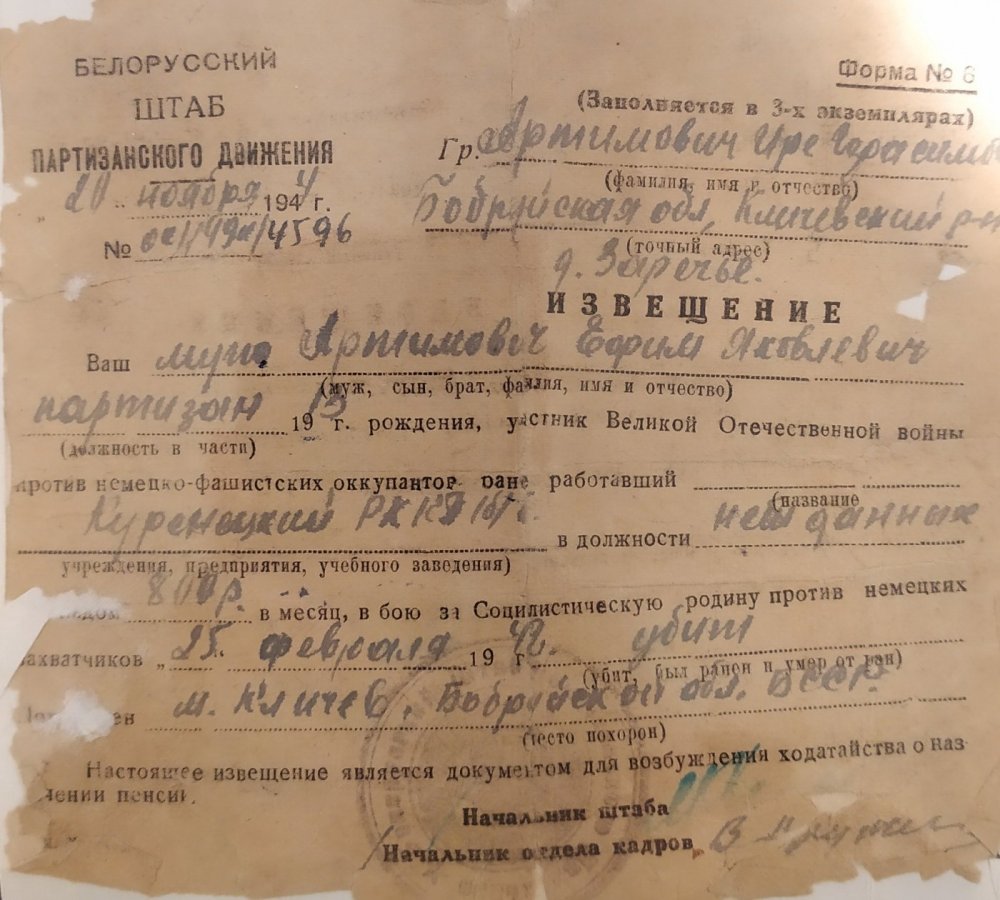 БЕЛОРУССКИЙ
ШТАБ
ПАРТИЗАНСКОГО ДВИЖЕНИЯ
„20“ ноября 1944 г.
№ 4596
Форма № 6
(Заполняется в 3-х экземплярах)
Гр. Артимович Ире Герасим
(фамилия, имя и отчество)
Бобруйская обл, Кличевский р-н
(точный адрес)
д. Заречье.
ИЗВЕЩЕНИЕ
Ваш муж Артимович Ефим Яковлевич
(муж, сын, брат, фамилия, имя и отчество)
партизан 1915 г. рождения, участник Великой Отечественной войны
(должность в части)
против немецко-фашистских оккупантов ране работавший
(название
Куренецкий в должности нет данных
учреждения, предприятия, учебного заведения)
800 р. в месяц, в бою за Социлистическую родину против немецких
захватчиков „25. февраля 1942 г. убит
(убит, был ранен и умер от ран)
м. Кличев, Бобруйской обл. БССР.
(место похорон)
Настоящее извещение является документом для возбуждения ходатайства о наз-
чении пенсии.
Начальник штаба
Начальник отдела кадров